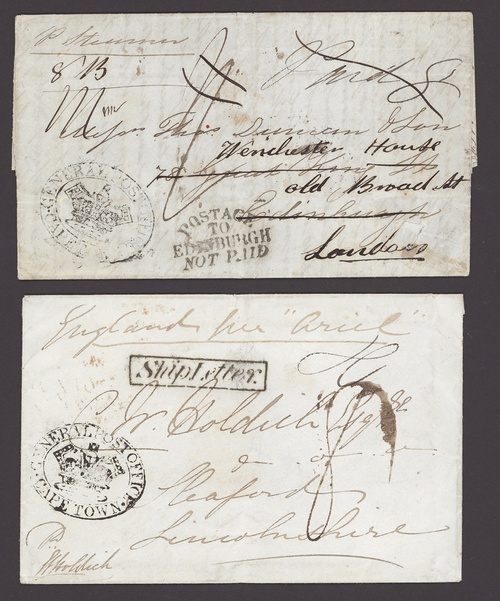 P. Steamer
8 B
Paid 8
Messrs Thos Duncan & Son
Winchester House
78
old Broad St
Edinburgh
London
GENERAL POST OFFICE
CAPE TOWN
POSTAGE
TO
EDINBURGH
NOT PAID
England per "Ariel"
Ship Letter.
W. Holdich Esqre
Sleaford
Lincolnshire
GENERAL POST OFFICE
CAPE TOWN
P.
W Holdich